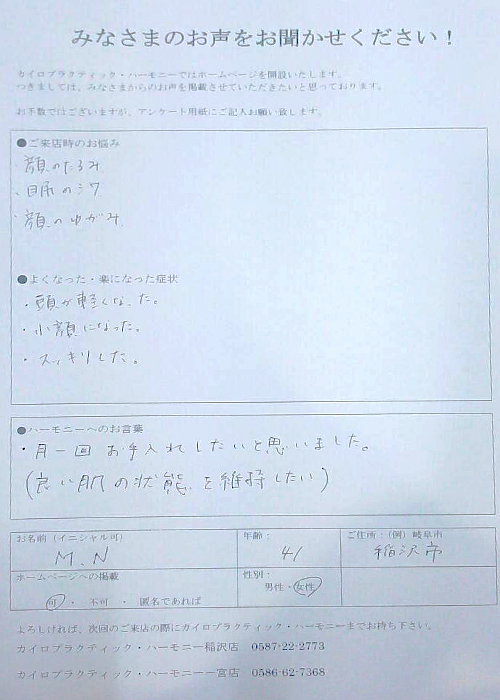 みなさまのお声をお聞かせください！
カイロプラクティック・ハーモニーではホームページを開設いたします。
つきましては、みなさまからのお声を掲載させていただきたいと思っております。
お手数ではございますが、アンケート用紙にご記入お願い致します。
●ご来店時のお悩み
・顔のたるみ
・目尻のシワ
・顔のゆがみ
●よくなった・楽になった症状
・頭が軽くなった。
・小顔になった。
・スッキリした。
●ハーモニーへのお言葉
・月一回 お手入れしたいと思いました。
(良い肌の状態を維持したい)
お名前（イニシャル可） 年齢： ご住所：（例）岐阜市
M.N 41 稲沢市
ホームページへの掲載 性別：
可 ・ 不可 ・ 匿名であれば 男性・女性
よろしければ、次回のご来店の際にカイロプラクティック・ハーモニーまでお持ち下さい。
カイロプラクティック・ハーモニー稲沢店 0587-22-2773
カイロプラクティック・ハーモニー一宮店 0586-62-7368